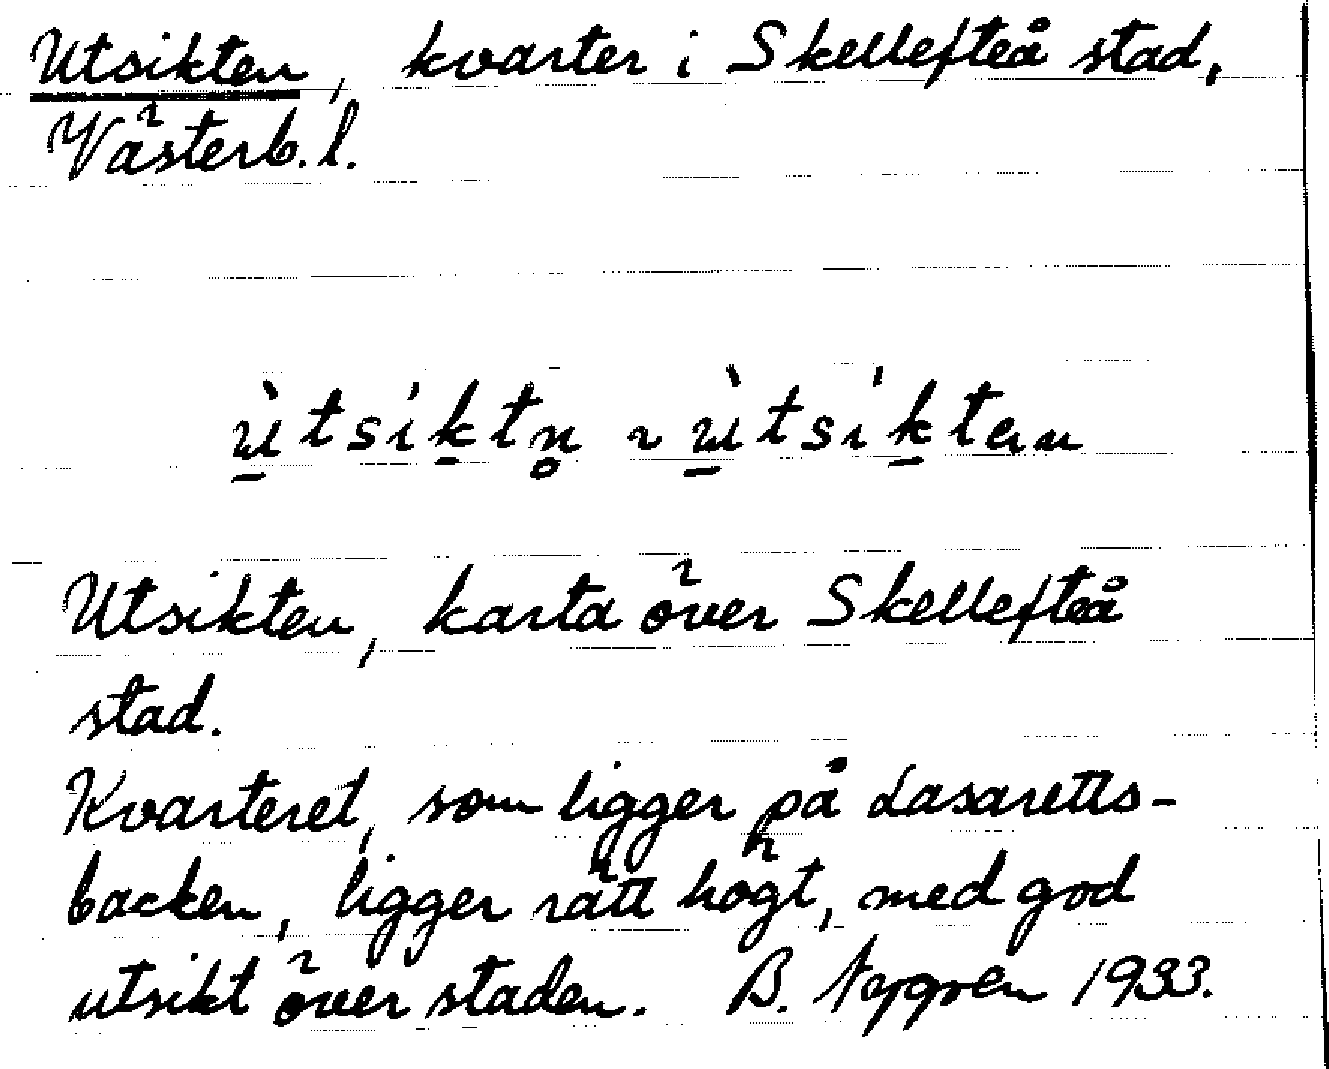 Utsikten, kvarter i Skellefteå stad,
Västerb. l.
ùtsi'ktn̥ ~ ùtsi'kten
Utsikten, karta över Skellefteå
stad.
Kvarteret, som ligger på Lasaretts-
backen, ligger rätt högt, med god
utsikt över staden. B. 1933.